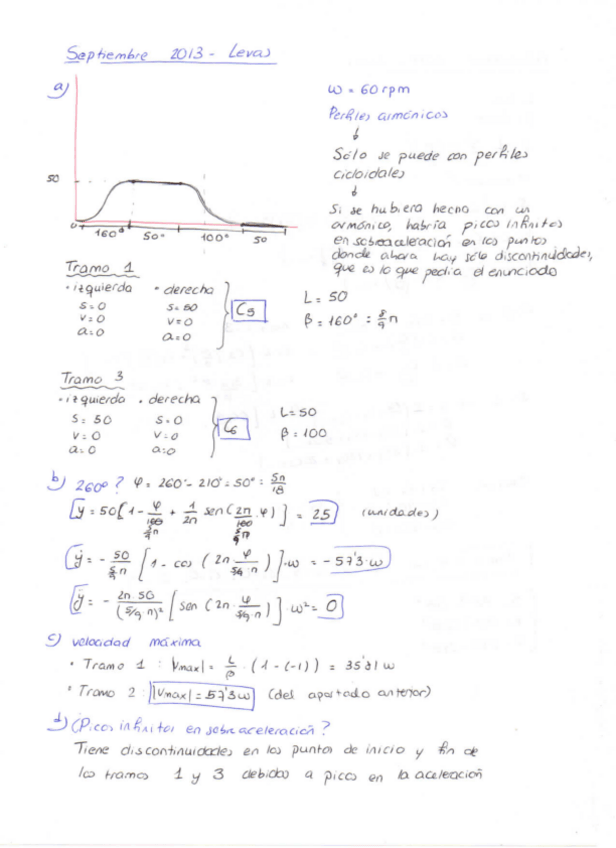 Septiembre 2013 - Levas
a)
50
0
160°
50°
100°
50
ω = 60 rpm
Perfiles armónicos
↓
Sólo se puede con perfiles
cicloidales
↓
Si se hubiera hecho con un
armónico, habría picos infinitos
en sobreaceleración en los puntos
donde ahora hay sólo discontinuidades,
que es lo que pedía el enunciado
Tramo 1
· izquierda · derecha
s=0 s=50
v=0 v=0
a=0 a=0
C5
L = 50
β = 160° = 8/9 π
Tramo 3
· izquierda · derecha
s=50 s=0
v=0 v=0
a=0 a=0
C6
L=50
β = 100
b) 260° ? φ = 260° - 210° = 50° = 5π/18
y = 50 [1 - φ/(5/9 π) + 1/2π sen (2π/(5/9 π) · φ)] = 25 (unidades)
ẏ = - 50/(5/9 π) [1 - cos (2π · φ/(5/9 · π))] · ω = - 57'3 · ω
ÿ = - 2π · 50/(5/9 · π)² [sen (2π · φ/(5/9 · π))] · ω² = 0
c) velocidad máxima
· Tramo 1 : |Vmax| = L/β · (1 - (-1)) = 35'81 ω
· Tramo 2 : |Vmax| = 57'3 ω (del apartado anterior)
d) ¿Picos infinitos en sobreaceleración ?
Tiene discontinuidades en los puntos de inicio y fin de
los tramos 1 y 3 debidos a picos en la aceleración